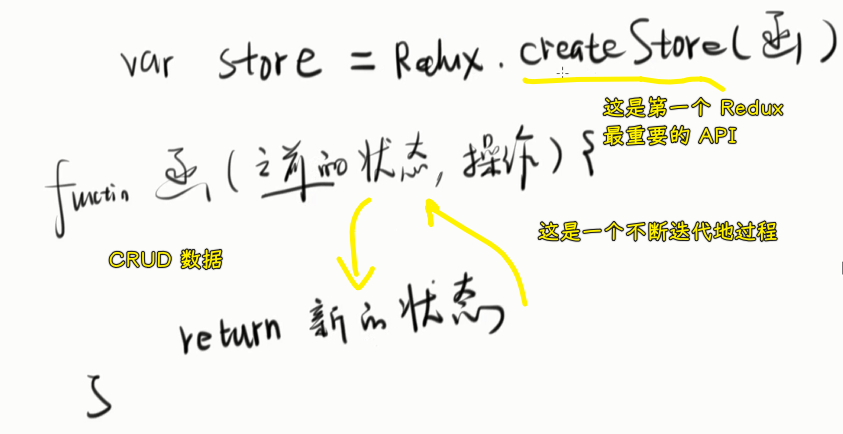 var store = Redux.createStore(函)
这是第一个 Redux
最重要的 API
function 函(之前的状态,操作){
这是一个不断迭代地过程
CRUD 数据
return 新的状态
}